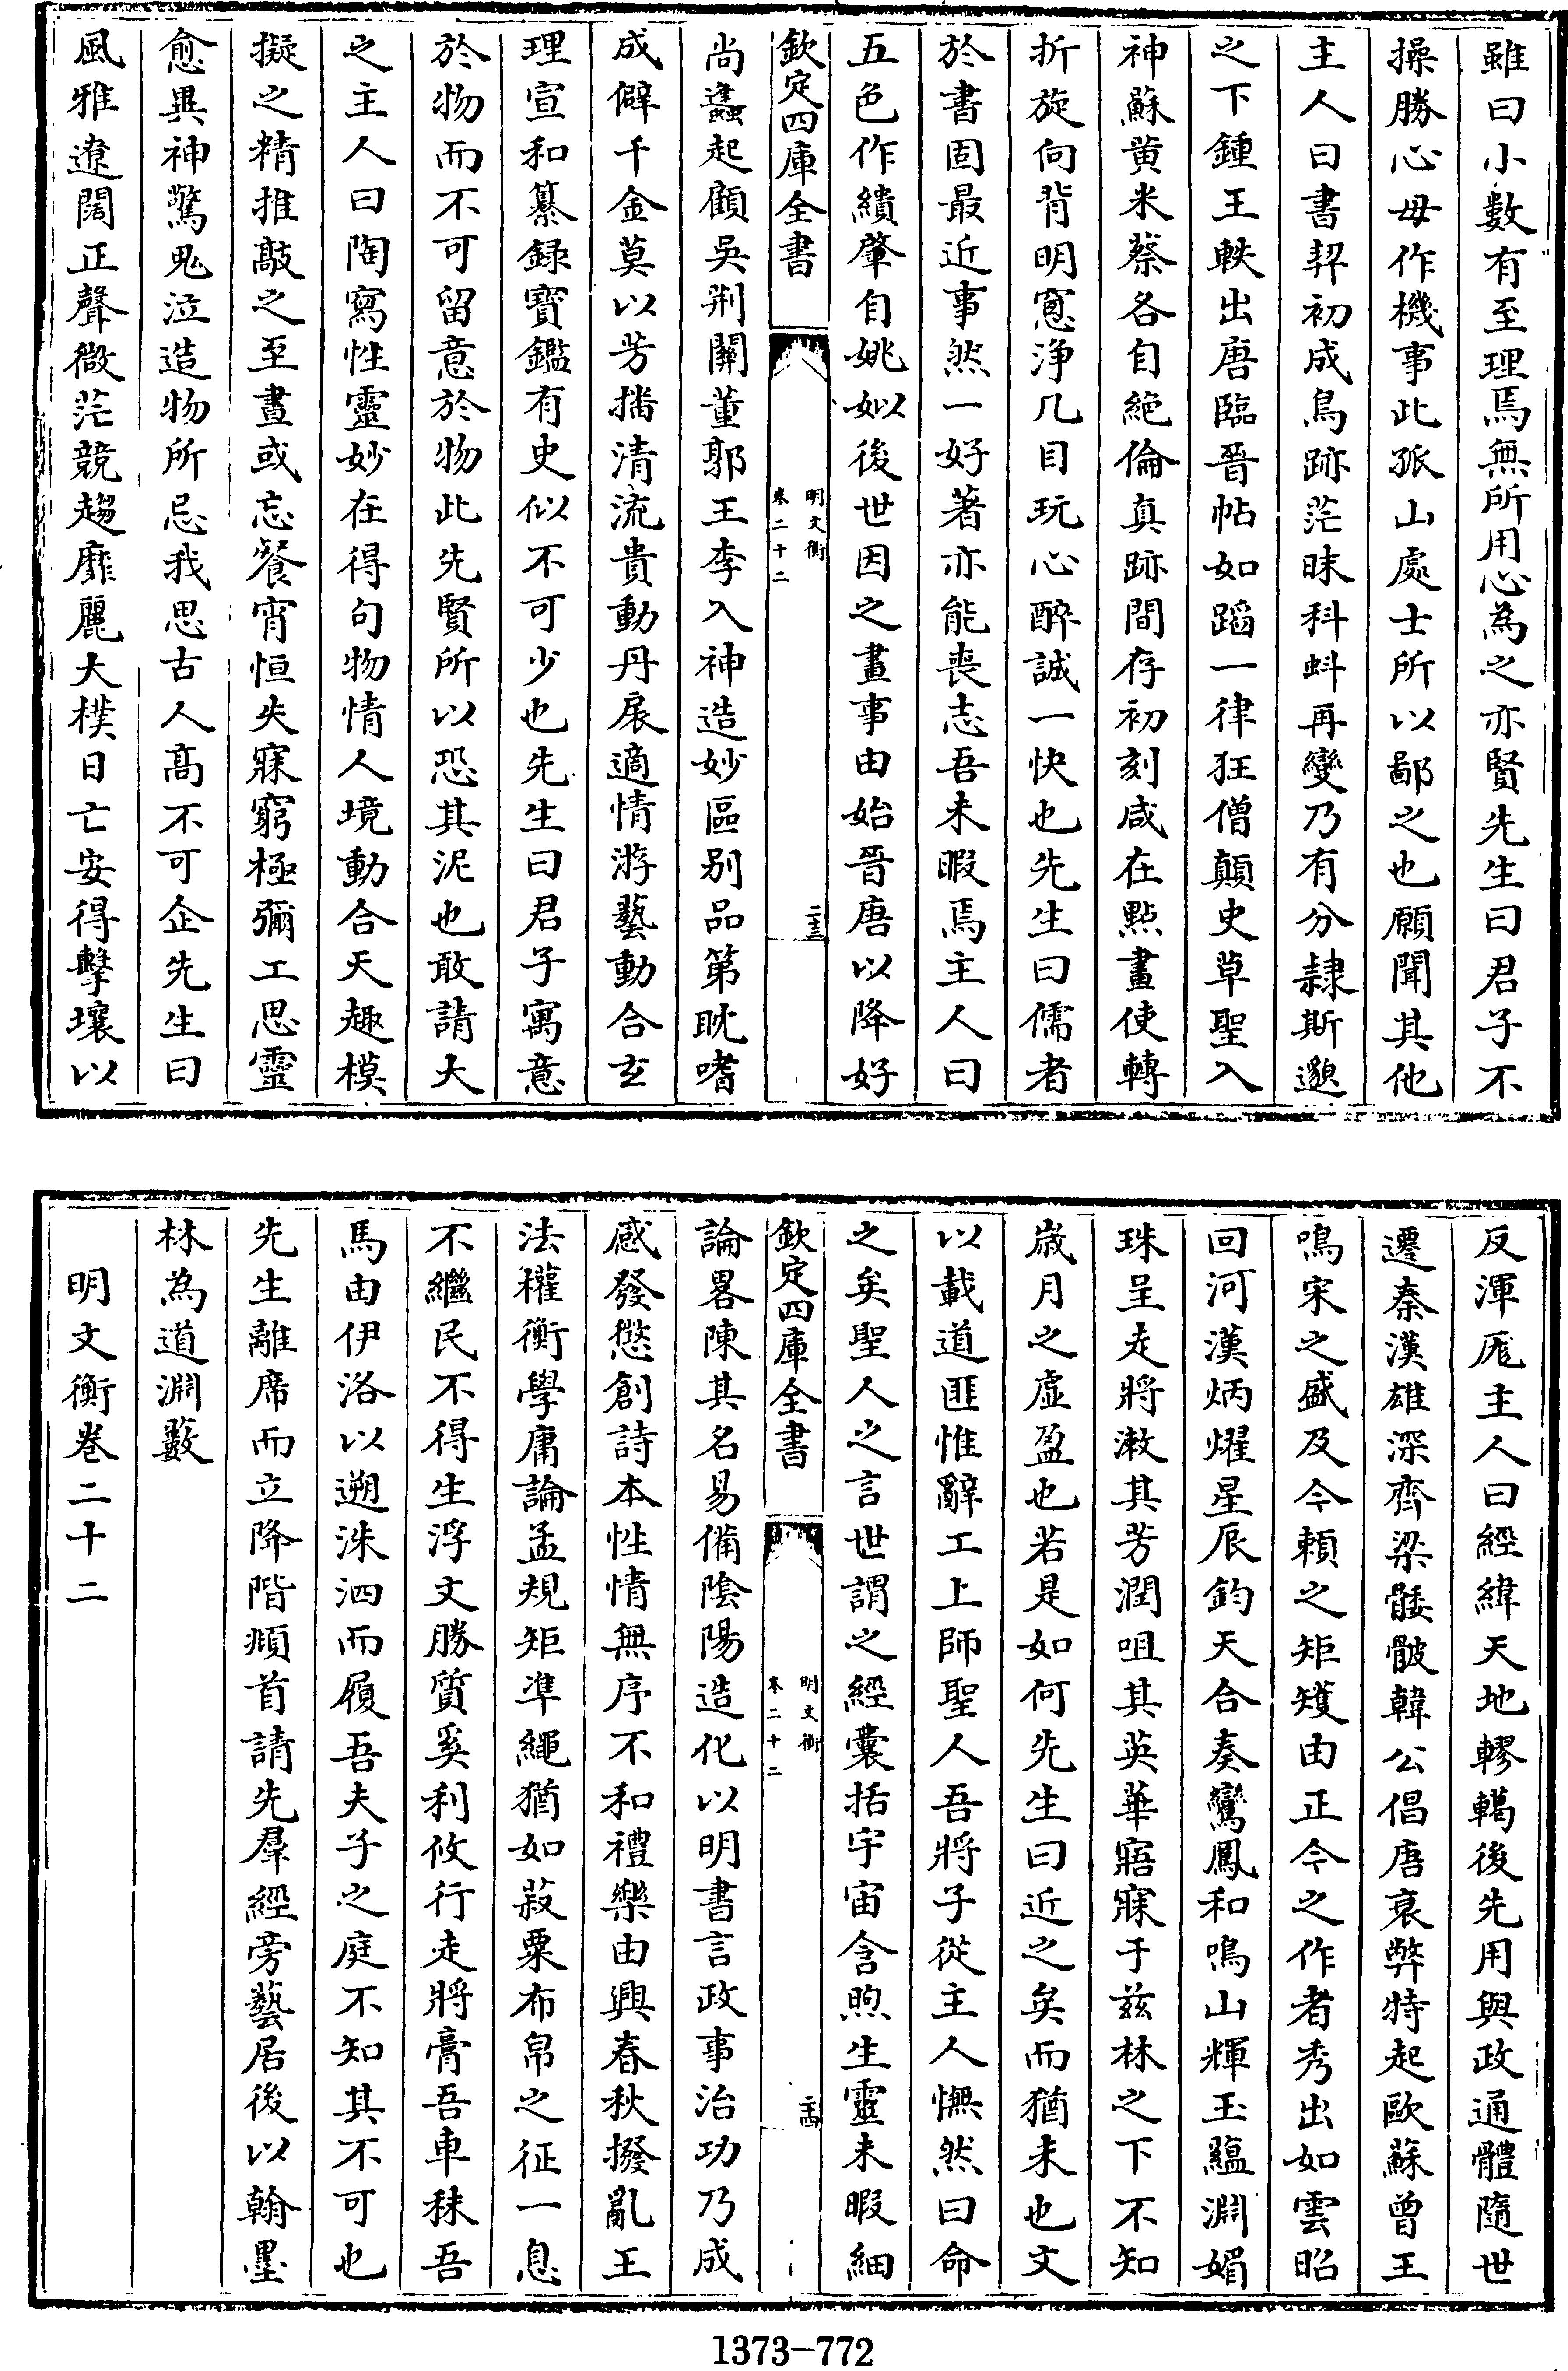 雖曰小數有至理焉無所用心為之亦賢先生曰君子不
操勝心毋作機事此孤山處士所以鄙之也願聞其他
主人曰書契初成鳥跡茫昧科蚪再變乃有分隷斯邈
之下鍾王軼出唐臨晉帖如蹈一律狂僧顛史草聖入
神蘇黄米蔡各自絶倫真跡間存初刻咸在點畫使轉
折旋向背明窓浄几目玩心醉誠一快也先生曰儒者
於書固最近事然一好著亦能喪志吾未暇焉主人曰
五色作繢肇自姚姒後世因之畫事由始晉唐以降好
欽定四庫全書
明文衡
卷二十二
二十三
尚蠭起顧吳荆關董郭王李入神造妙區别品第耽嗜
成僻千金莫以芳播清流貴動丹扆適情游藝動合玄
理宣和纂録寶鑑有史似不可少也先生曰君子寓意
於物而不可留意於物此先賢所以恐其泥也敢請大
之主人曰陶寫性靈妙在得句物情人境動合天趣模
擬之精推敲之至晝或忘餐宵恒失寐窮極彌工思靈
愈異神驚鬼泣造物所忌我思古人髙不可企先生曰
風雅遼闊正聲微茫競趨靡麗大樸日亡安得擊壤以
反渾厖主人曰經緯天地轇轕後先用與政通體隨世
遷秦漢雄深齊梁骫骳韓公倡唐衰弊特起歐蘇曾王
鳴宋之盛及今頼之矩矱由正今之作者秀出如雲昭
回河漢炳燿星辰鈞天合奏鸞鳳和鳴山輝玉藴淵媚
珠呈走將漱其芳潤咀其英華寤寐于兹林之下不知
歳月之虚盈也若是如何先生曰近之矣而猶未也文
以載道匪惟辭工上師聖人吾將子從主人憮然曰命
之矣聖人之言世謂之經囊括宇宙含煦生靈未暇細
欽定四庫全書
明文衡
卷二十二
二十四
論畧陳其名易備陰陽造化以明書言政事治功乃成
感發懲創詩本性情無序不和禮樂由興春秋撥亂王
法權衡學庸論孟規矩凖繩猶如菽粟布帛之征一息
不繼民不得生浮文勝質奚利攸行走將膏吾車秣吾
馬由伊洛以遡洙泗而履吾夫子之庭不知其不可也
先生離席而立降階頫首請先羣經旁藝居後以翰墨
林為道淵藪
明文衡卷二十二
1373-772